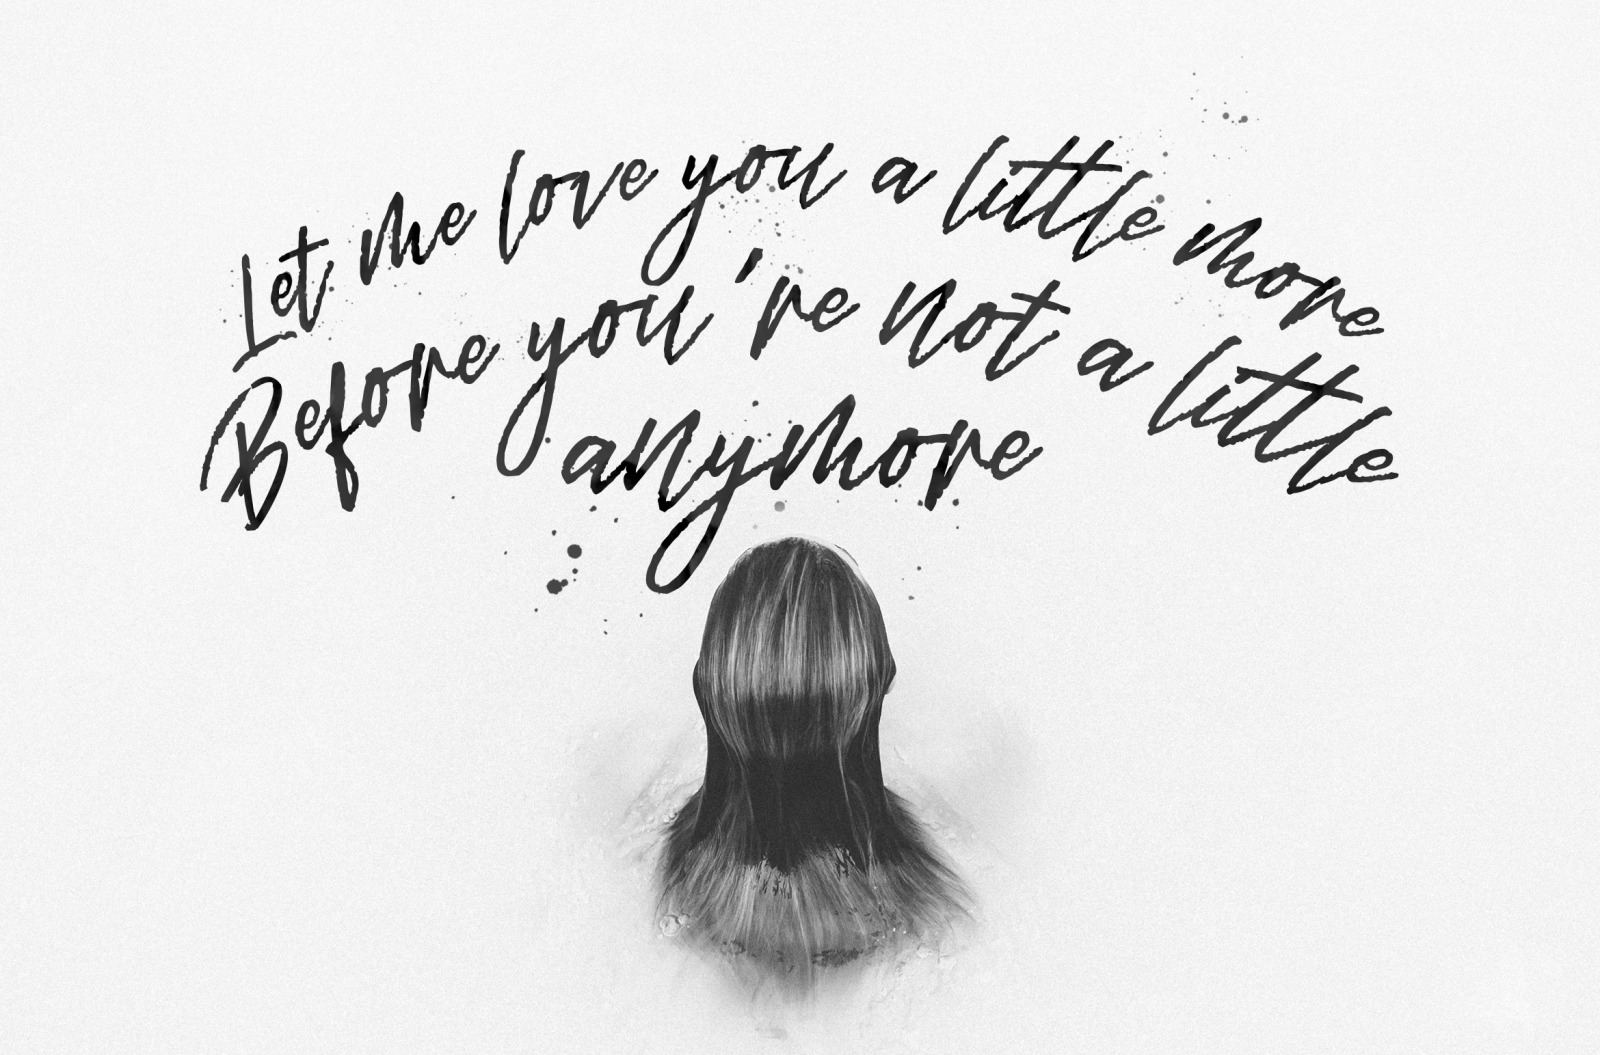 Let me love you a little more
Before you're not a little
anymore